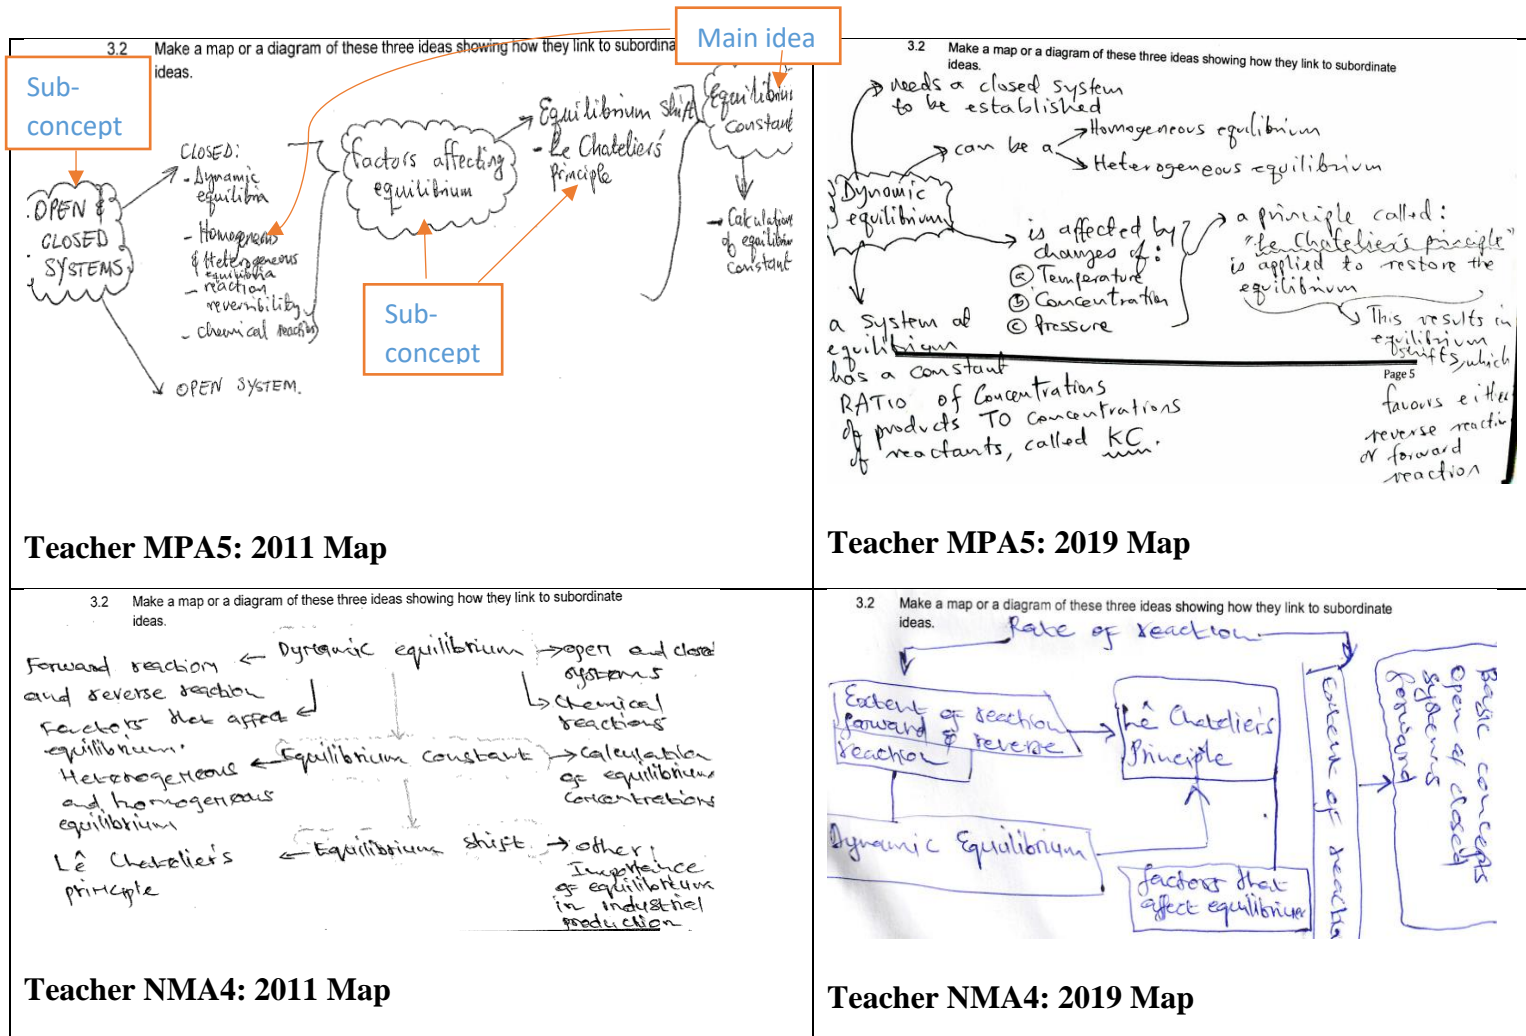 Main idea
3.2 Make a map or a diagram of these three ideas showing how they link to subordina
ideas.
Sub-
concept
OPEN &
CLOSED
SYSTEMS
CLOSED:
- Dynamic
equilibria
- Homogeneous
& Heterogeneous
equilibria
- reaction
reversibility
- chemical reaction
OPEN SYSTEM.
factors affecting
equilibrium
Sub-
concept
- Equilibrium shift
- Le Chatelier's
principle
Equilibrium
constant
- Calculation
of equilibrium
constant
Teacher MPA5: 2011 Map
3.2 Make a map or a diagram of these three ideas showing how they link to subordinate
ideas.
needs a closed system
to be established
can be a
Homogeneous equilibrium
Heterogeneous equilibrium
Dynamic
equilibrium
is affected by
changes of:
(a) Temperature
(b) Concentration
(c) Pressure
a principle called:
"Le Chatelier's principle"
is applied to restore the
equilibrium
This results in
equilibrium
shifts, which
Page 5
favours either
reverse reaction
or forward
reaction
a system at
equilibrium
has a constant
RATIO of Concentrations
of products TO concentrations
of reactants, called KC.
Teacher MPA5: 2019 Map
3.2 Make a map or a diagram of these three ideas showing how they link to subordinate
ideas.
Forward reaction
and reverse reaction
Dynamic equilibrium
open and closed
systems
Chemical
reactions
Factors that affect
equilibrium.
Heterogeneous
and homogeneous
equilibrium
Equilibrium constant
Calculation
of equilibrium
concentrations
Lê Chatelier's
principle
Equilibrium shift
other:
Importance
of equilibrium
in industrial
production
Teacher NMA4: 2011 Map
3.2 Make a map or a diagram of these three ideas showing how they link to subordinate
ideas.
Rate of reaction
Extent of reaction
forward & reverse
reaction
Lê Chatelier's
Principle
Dynamic Equilibrium
factors that
affect equilibrium
Extent of reaction
Basic concepts
Open & closed
systems
forward
Teacher NMA4: 2019 Map